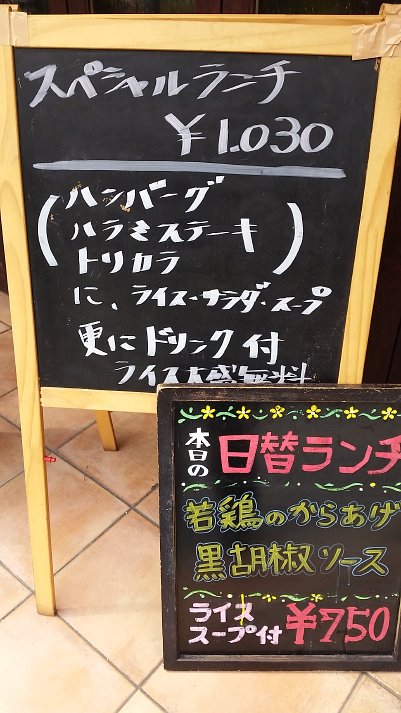 スペシャルランチ
¥1.030
(ハンバーグ
ハラミステーキ
トリカラ)
に、ライス・サラダ・スープ
更にドリンク付
ライス大盛無料
本日の日替ランチ
若鶏のからあげ
黒胡椒ソース
ライス
スープ付 ¥750